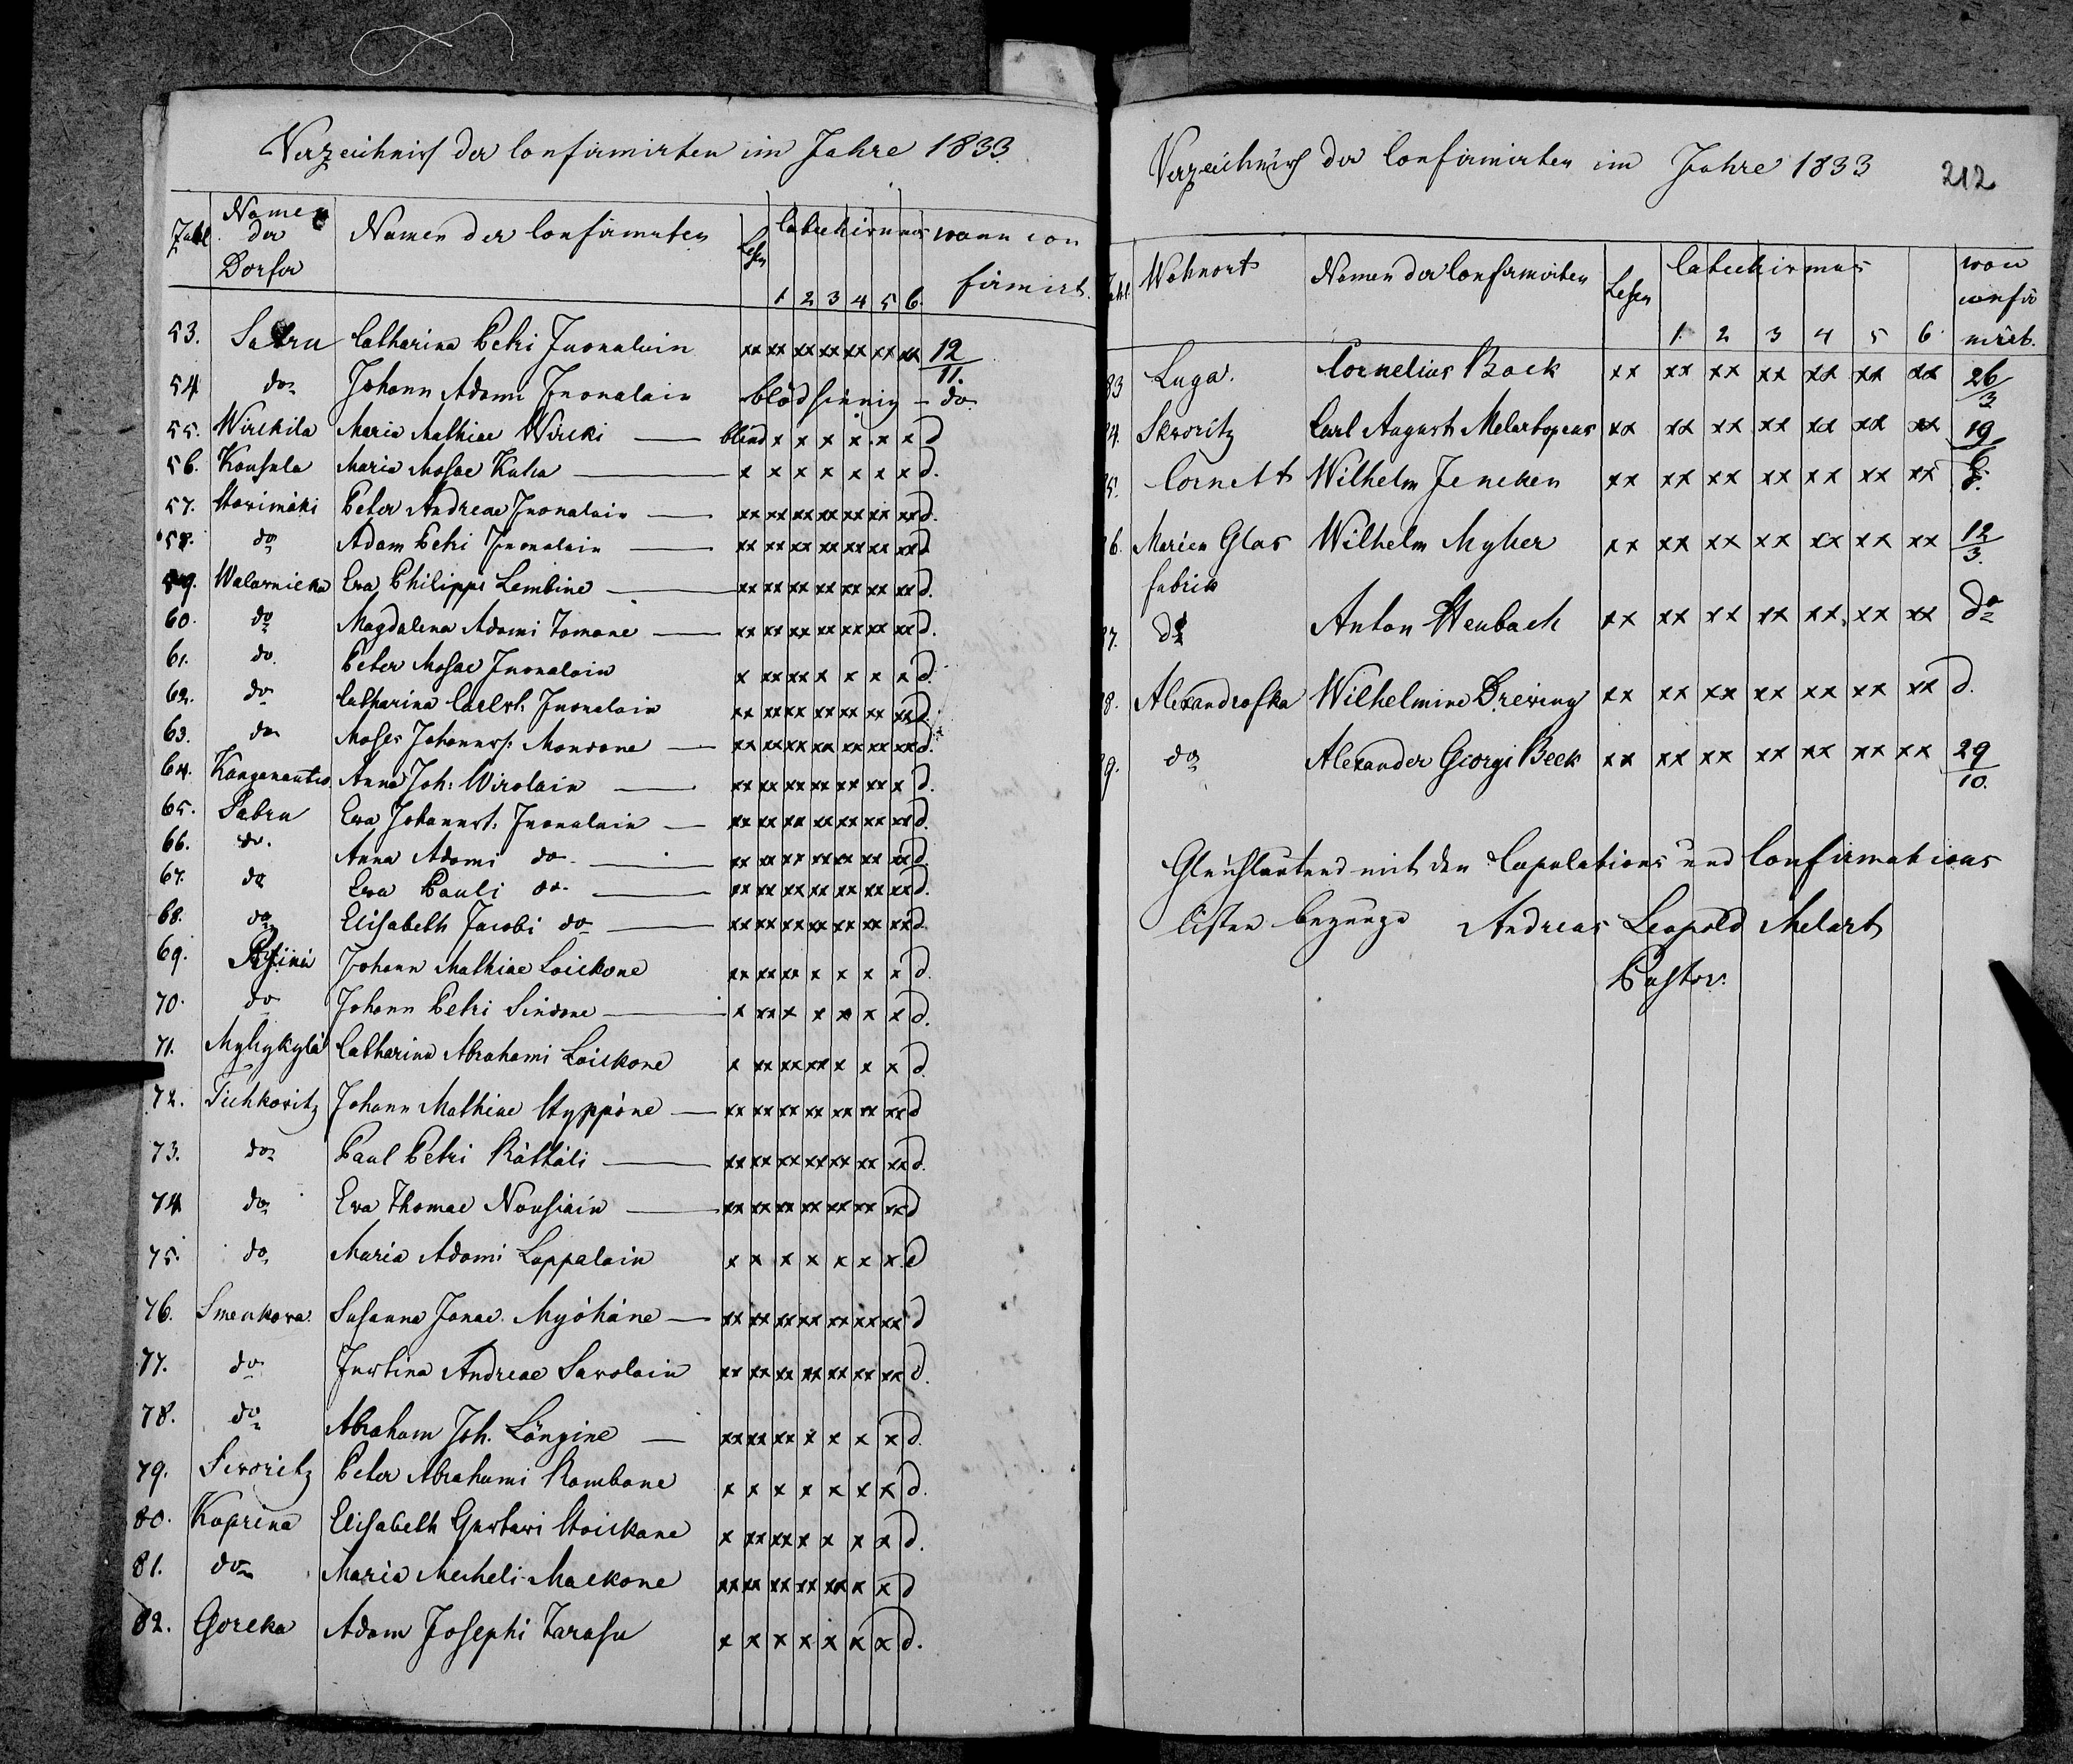 Verzeichniss der Confirmirten im Jahre 1833.
Zahl Namen der Dörfer Namen der Confirmirten Lesen Catechismus wann con
firmirt.
1 2 3 4 5 6.
53. Sabru Catharina Petri Inonalain xx xx xx xx xx xx xx 12/11.
54 do Johann Adami Inonalain blödsinnig – do
55. Wirckila Maria Mathiae Wircki blind x x x x x x d
56. Konsula Maria Mosae Kuha x x x x x x x d.
57. Harimäki Peter Andreae Inonalain xx xx xx xx xx xx xx d.
58. do Adam Petri Inonalain xx xx xx xx xx xx xx d
59. Walarnicka Eva Philippi Lembine xx xx xx xx xx xx xx d.
60. do Magdalena Adami Tomane xx xx xx xx xx xx xx d.
61. do. Peter Mosae Inonalain x xx xx x x x x d.
62. do Catharina Carlst. Inonalain xx xx xx xx xx xx xx d.
63. do Moses Johannst. Monsone xx xx xx xx xx xx xx d.
64. Anna Joh: Wirolain xx xx xx xx xx xx x d.
65. Sabru Eva Johannst. Inonalain xx xx xx xx xx xx xx d.
66. do. Anna Adami do xx xx xx xx xx xx xx d.
67. do Eva Pauli do. xx xx xx xx xx xx xx d.
68. do Elisabeth Jacobi do xx xx xx xx xx xx xx d.
69. Johann Mathiae Loickone xx xx xx x x x x d.
70. do Johann Petri Sindone x xx x x x x x d.
71. Myhykylä Catharina Abrahami Loickone x xx xx xx x x x d.
72. Tichkovitz Johann Mathiae Hyppöne xx xx xx xx xx xx xx d
73. do Paul Petri Rättäli xx xx xx xx xx xx xx d.
74 do Eva Thomae Nousiain xx xx xx xx xx xx xx d
75. do Maria Adami Lappalain x x x x x x x d
76. Smenkova Susanna Jonae. Myöhäne xx xx xx xx xx xx xx d
77. do Justina Andreae Savolain xx xx xx xx xx xx xx d.
78. do Abraham Joh. Längine xx xx xx x x x x d.
79. Scvoritz Peter Abrahami Rombane x x x x x x x d.
80. Koprina Elisabeth Gustavi Hoickane x xx xx x x x x d.
81. do Maria Micheli Mackone xx xx xx xx xx x x d
82. Goreka Adam Josephi Tarasu x x x x x x x d.
Verzeichniss der Confirmirten im Jahre 1833
212
Wohnort Namen der Confirmirten Lesen Catechismus wan
confir
1 2 3 4 5 6 mirt.
83 Luga. Cornelius Bock xx xx xx xx xx xx xx 26/3
84. Skvoritz Carl August Melartopeus xx xx xx xx xx xx xx 19/6.
85. Cornett Wilhelm Jencken xx xx xx xx xx xx xx
86. Marien Glas Wilhelm Myher xx xx xx xx xx xx xx 12/3.
fabrik
87. do Anton Weubach xx xx xx xx xx xx xx do
88. Alexandrofka Wilhelmine Dreving xx xx xx xx xx xx xx d.
89. do Alexander Georgi Beck xx xx xx xx xx xx xx 29/10.
Gleichlautend mit den Copulations und Confirmations
listen bezeuge Andreas Leopold Melart
Pastor.